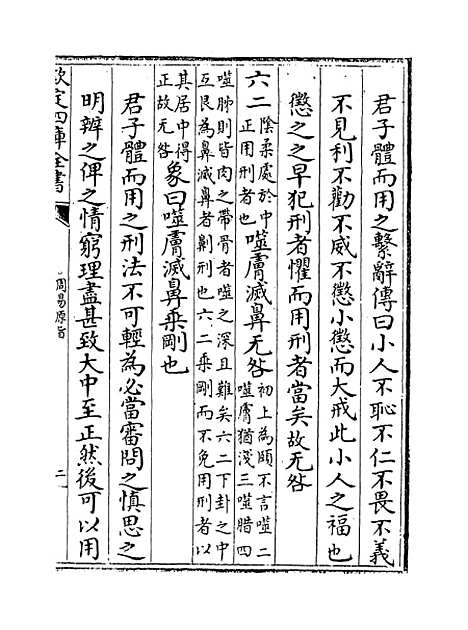 君子體而用之繫辭傳曰小人不恥不仁不畏不義
不見利不勸不威不懲小懲而大戒此小人之福也
懲之之早犯刑者懼而用刑者當矣故无咎
六二陰柔處於中正用刑者也噬膚滅鼻无咎初上為頤不言噬二噬膚猶淺三噬腊四
噬胏則皆肉之帶骨者噬之深且難矣六二下卦之中
互艮為鼻滅鼻者劓刑也六二乘剛而不免用刑者以
其居中得正故无咎象曰噬膚滅鼻乘剛也
君子體而用之刑法不可輕為必當審問之慎思之
明辨之俾之情窮理盡甚致大中至正然後可以用
欽定四庫全書
周易原旨
二